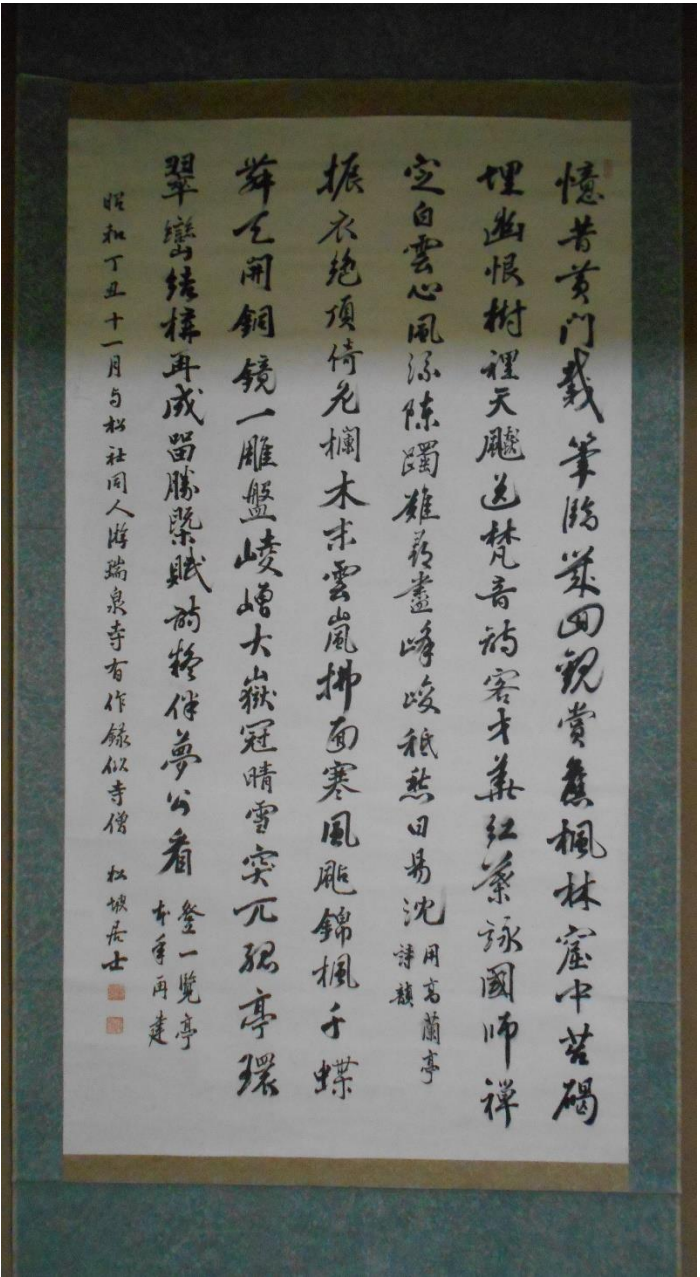 憶昔黄門載筆臨幾回觀賞舊楓林窟中苔碣
埋幽恨樹裡天飈送梵音詩客才華紅葉詠國師禅
定白雲心風流陳躅難尋盡峰峻秖愁日易沈
用高蘭亭
詩韻
振衣絶頂倚危欄木末雲嵐拂面寒風颭錦楓千蝶
舞天開銅鏡一雕盤崚嶒大嶽冠晴雪突兀孤亭環
翠巒結構再成留勝槩賦詩擬伴夢公看
登一覧亭
本年再建
昭和丁丑十一月与松社同人游瑞泉寺有作録似寺僧 松坡居士